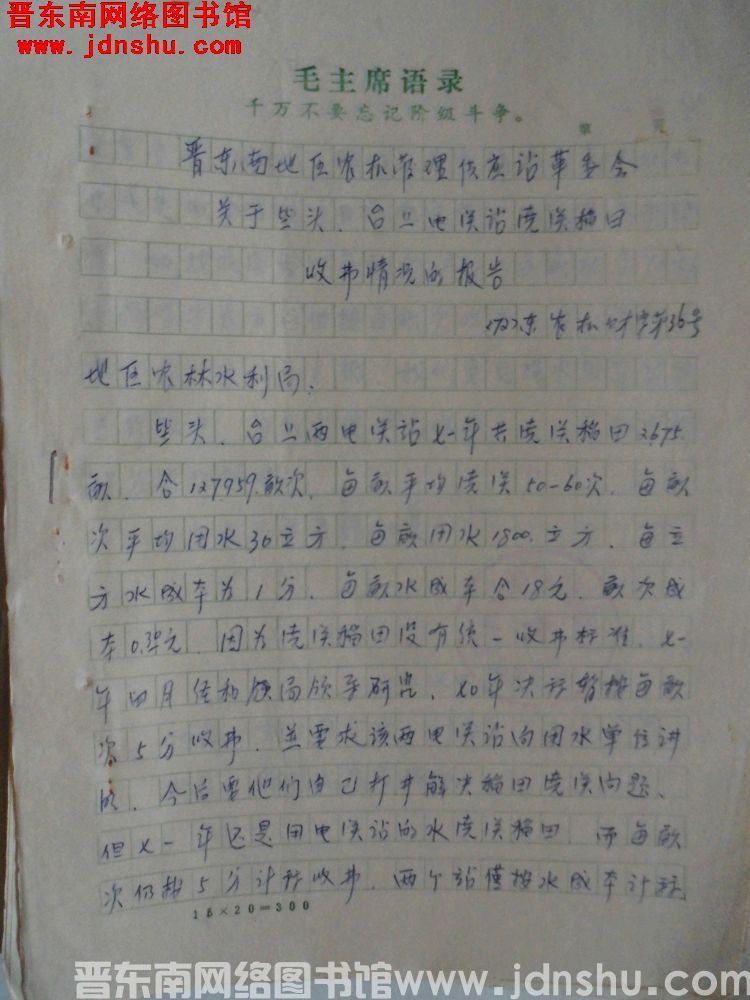 晋东南网络图书馆
www.jdnshu.com
毛主席语录
千万不要忘记阶级斗争。
第 页
晋东南地区农机管理供应站革委会
关于垫头、台上电灌站浇灌稻田
收费情况的报告
(72)东农机财字第36号
地区农林水利局:
头、台上两电灌站七一年共浇灌稻田2675
亩、合127959亩次、每亩平均浇灌50-60次、每亩
次平均用水30立方、每亩用水1800立方、每立
方水成本为1分、每亩水成本合18元、亩次成
本0.30元、因为浇灌稻田没有统一收费标准、七一
年四月经和领局领导研究、70年决算暂按每亩
次5分收费、并要求该两电灌站向用水单位讲
明、今后要他们自己打井解决稻田浇灌问题、
但七一年还是用电灌站的水浇灌稻田、而每亩
次仍按5分计算收费、两个站仅按水成本计算
15×20=300
晋东南网络图书馆www.jdnshu.com